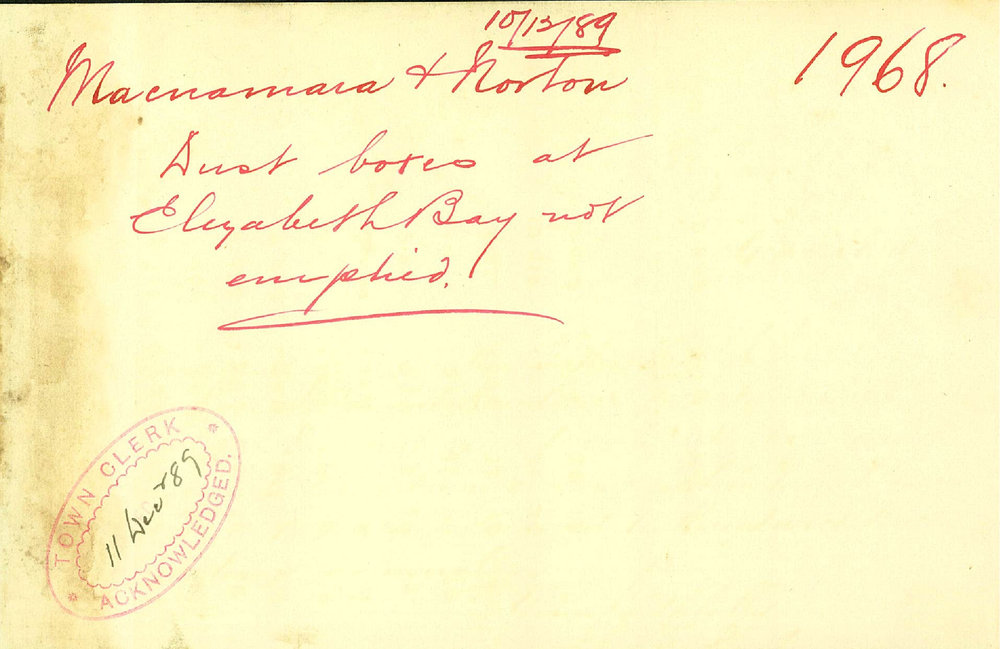 10/12/89
Macnamara & Norton
1968.
Dust boxes at
Elizabeth Bay not
emptied.
TOWN CLERK
11 Decr 89
ACKNOWLEDGED.